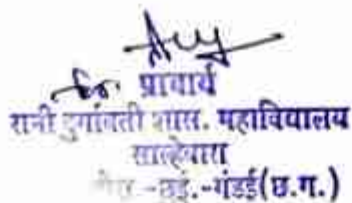 प्राचार्य
रानी दुर्गावती शास. महाविद्यालय
साल्हेवारा
-छुई.-गंडई(छ.ग.)